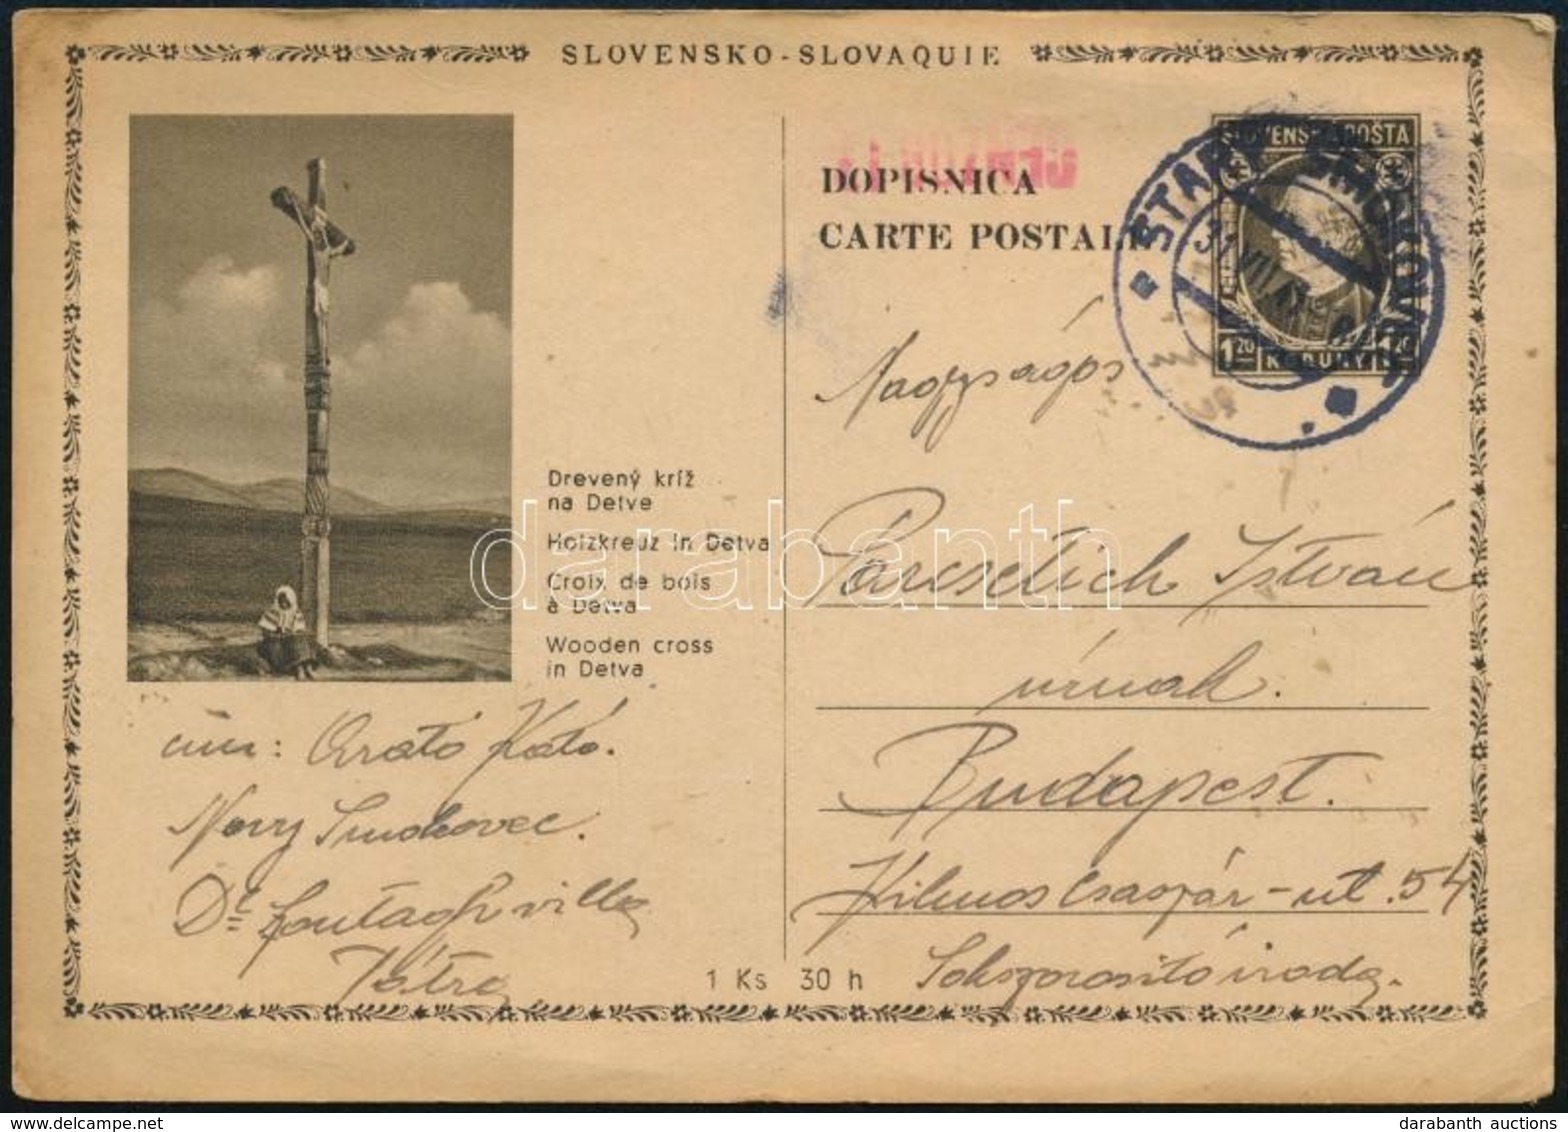 SLOVENSKO - SLOVAQUIE
DOPISNICA
CARTE POSTALE
SLOVENSKÁ POŠTA
STARÝ SMOKOVEC
31 VII
1 20 KORUNY 1 20
Nagyságos
István
úrnak.
Budapest.
Vilmos Császár-út. 54
Sokszorosító iroda.
Drevený kríž
na Detve
Holzkreuz in Detva
Croix de bois
à Detva
Wooden cross
in Detva
cím: Arató Kató.
Novy Smokovec.
Dr. villa
Tátra
1 Ks 30 h
darabanth
darabanth auctions